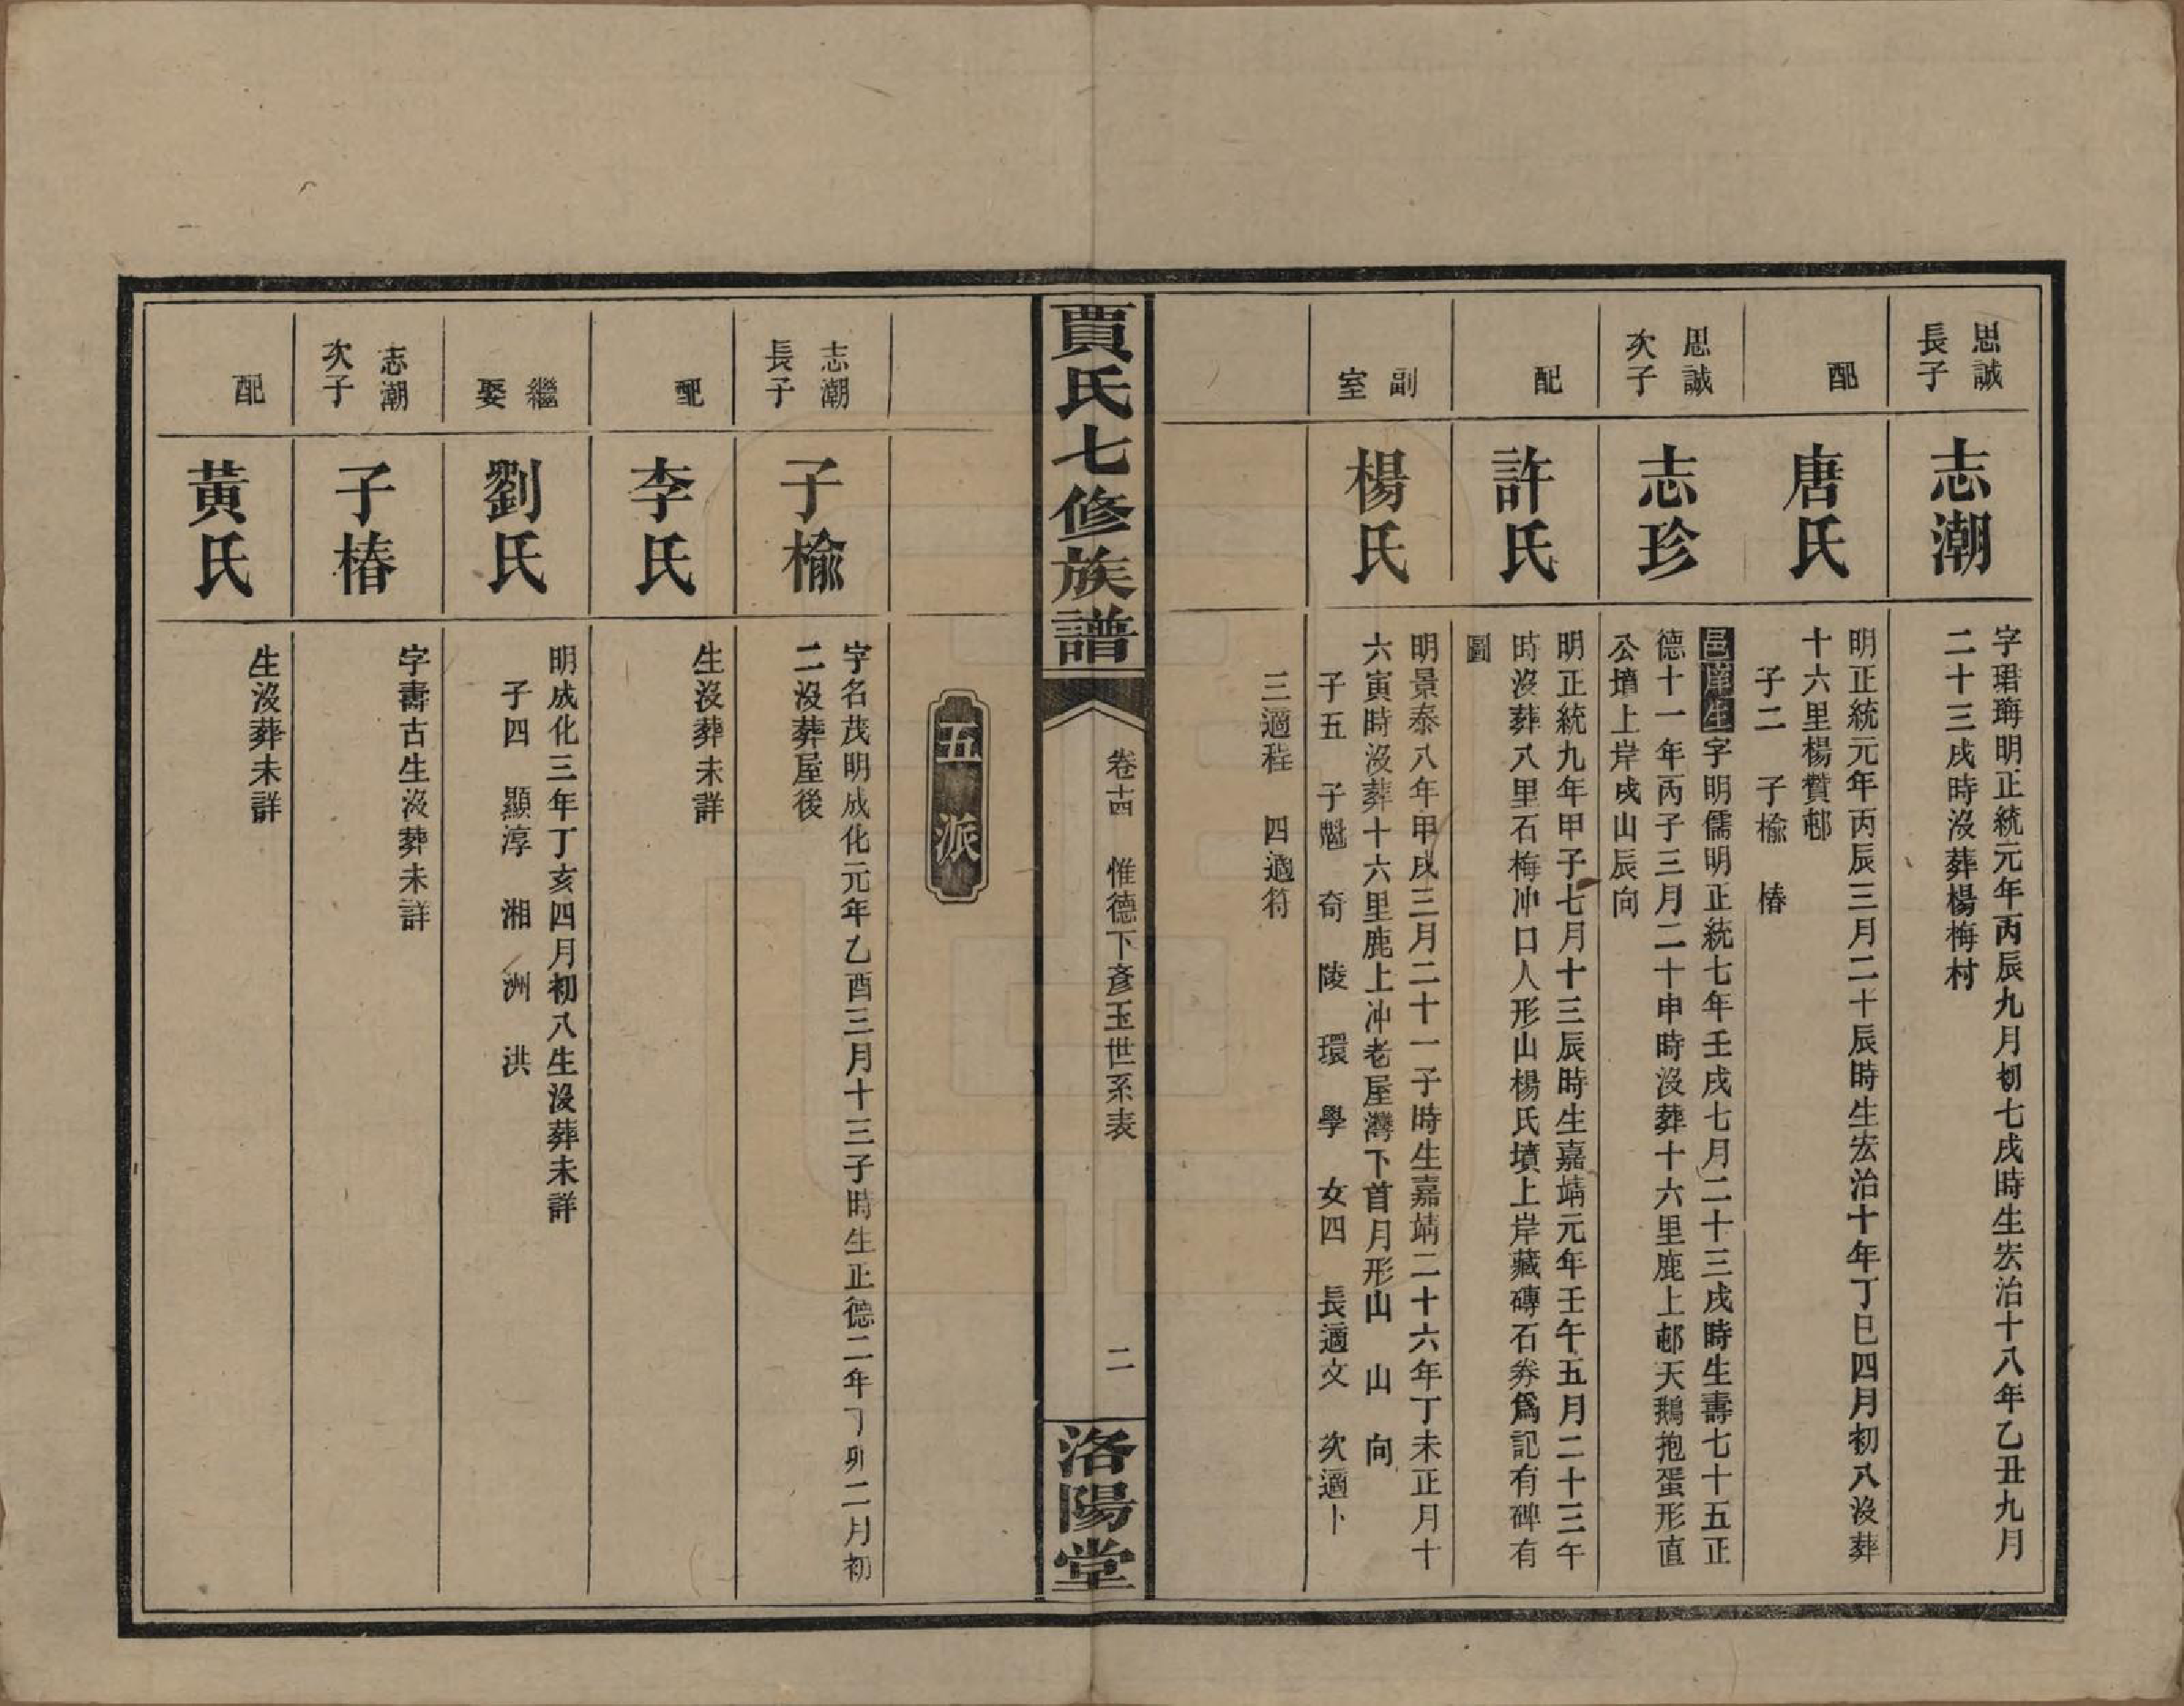 思誠
長子
志潮
字珺瑇明正統元年丙辰九月初七戌時生宏治十八年乙丑九月
二十三戌時沒葬楊梅村
配
唐氏
明正統元年丙辰三月二十辰時生宏治十年丁巳四月初八沒葬
十六里楊贊邨
子二　子榆　椿
思誠
次子
志珍
邑庠生字明儒明正統七年壬戌七月二十三戌時生壽七十五正
德十一年丙子三月二十申時沒葬十六里鹿上邨天鵝抱蛋形直
公墳上岸戌山辰向
配
許氏
明正統九年甲子七月十三辰時生嘉靖元年壬午五月二十三午
時沒葬八里石梅冲口人形山楊氏墳上岸藏磚石券爲記有碑有
圖
副
室
楊氏
明景泰八年甲戌三月二十一子時生嘉靖二十六年丁未正月十
六寅時沒葬十六里鹿上冲老屋灣下首月形山　山　向
子五　子魁　奇　陵　環　學　女四　長適文　次適卜
三適程　四適符
賈氏七修族譜
卷十四　惟德下彥玉世系表
二
洛陽堂
五派
志潮
長子
子榆
字名茂明成化元年乙酉三月十三子時生正德二年丁卯二月初
二沒葬屋後
配
李氏
生沒葬未詳
繼
娶
劉氏
明成化三年丁亥四月初八生沒葬未詳
子四　顯淳　湘　洲　洪
志潮
次子
子椿
字壽古生沒葬未詳
配
黃氏
生沒葬未詳